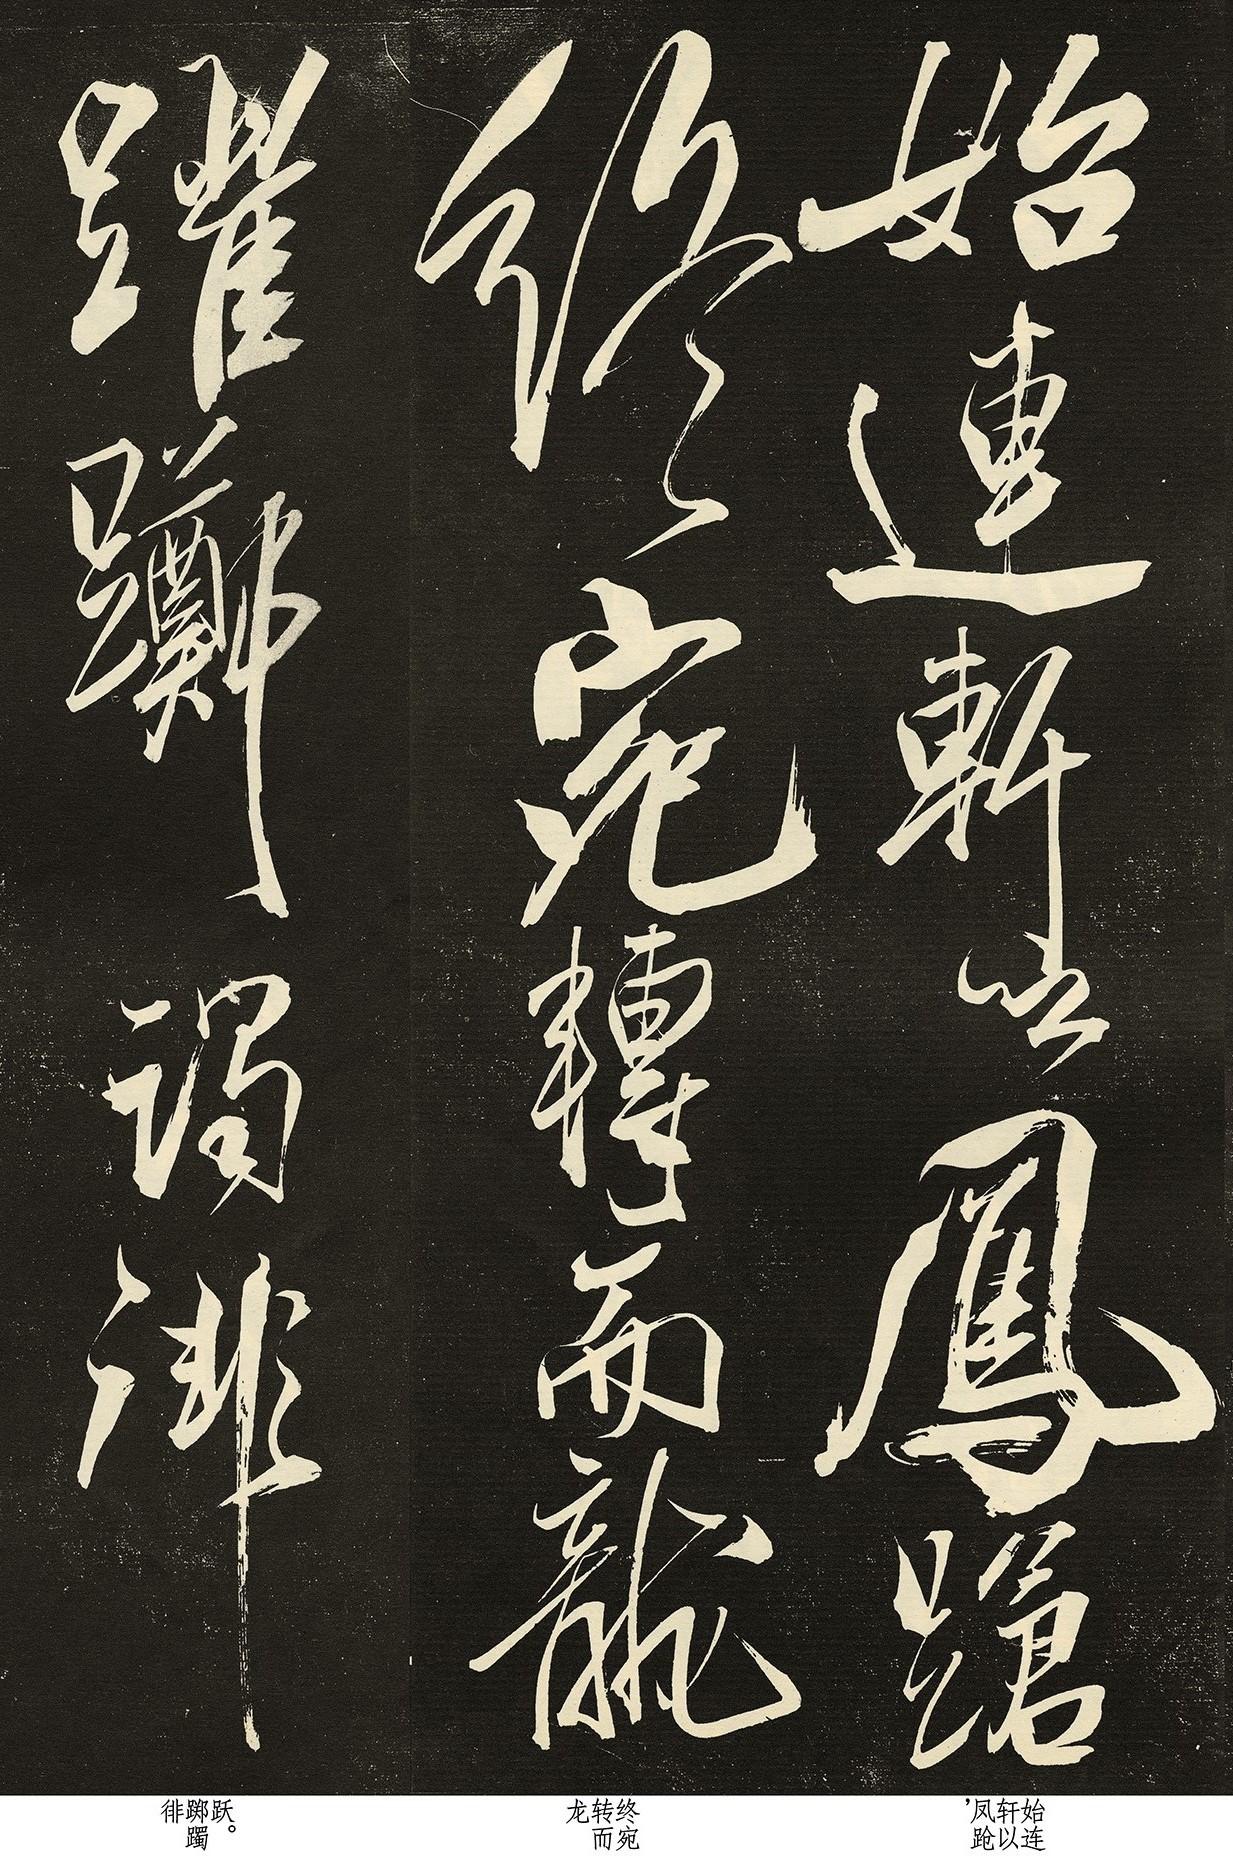 始連軒以鳳蹌
終宛轉而龍
躍躑躅徘
始连
轩以
凤跄，
终宛
转而
龙
跃。
踯躅
徘